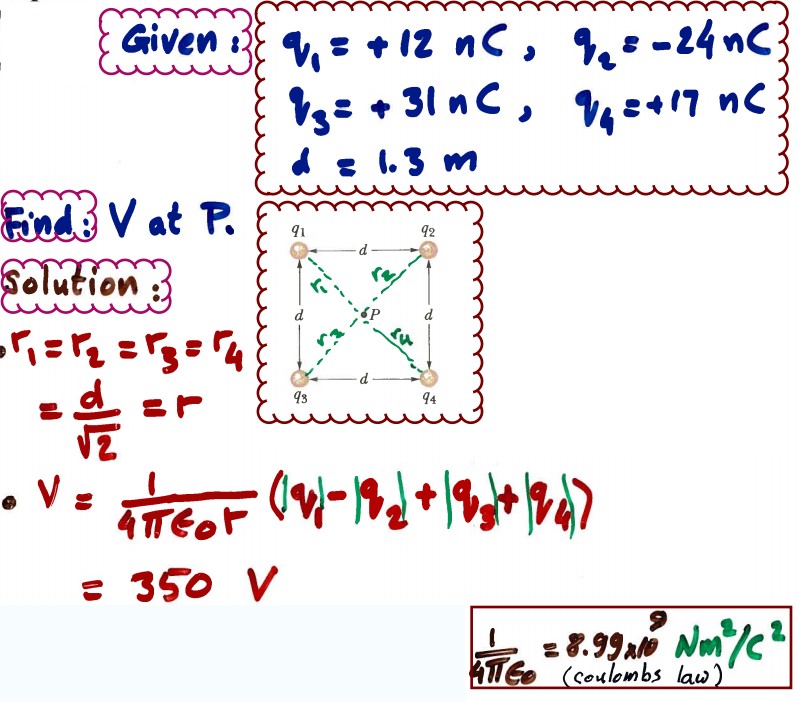 Given : q₁ = +12 nC, q₂ = -24 nC
q₃ = +31 nC, q₄ = +17 nC
d = 1.3 m
Find : V at P.
Solution :
q₁ d q₂
r₁ r₂
d P d
r₃ r₄
d
q₃ q₄
• r₁ = r₂ = r₃ = r₄
= d/√2 = r
• V = 1/4πϵ₀r (|q₁| - |q₂| + |q₃| + |q₄|)
= 350 V
1/4πϵ₀ = 8.99x10⁹ Nm²/C²
(coulombs law)